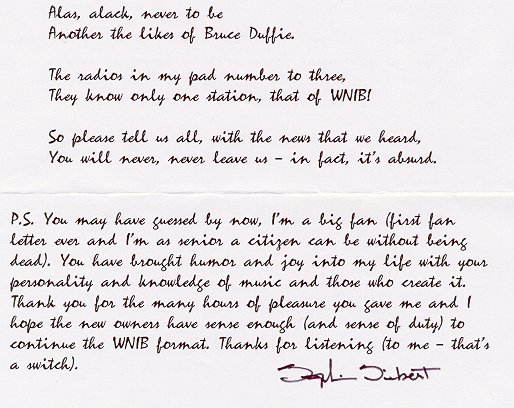 Alas, alack, never to be
Another the likes of Bruce Duffie.
The radios in my pad number to three,
They know only one station, that of WNIB!
So please tell us all, with the news that we heard,
You will never, never leave us – in fact, it's absurd.
P.S. You may have guessed by now, I'm a big fan (first fan
letter ever and I'm as senior a citizen can be without being
dead). You have brought humor and joy into my life with your
personality and knowledge of music and those who create it.
Thank you for the many hours of pleasure you gave me and I
hope the new owners have sense enough (and sense of duty) to
continue the WNIB format. Thanks for listening (to me – that's
a switch).